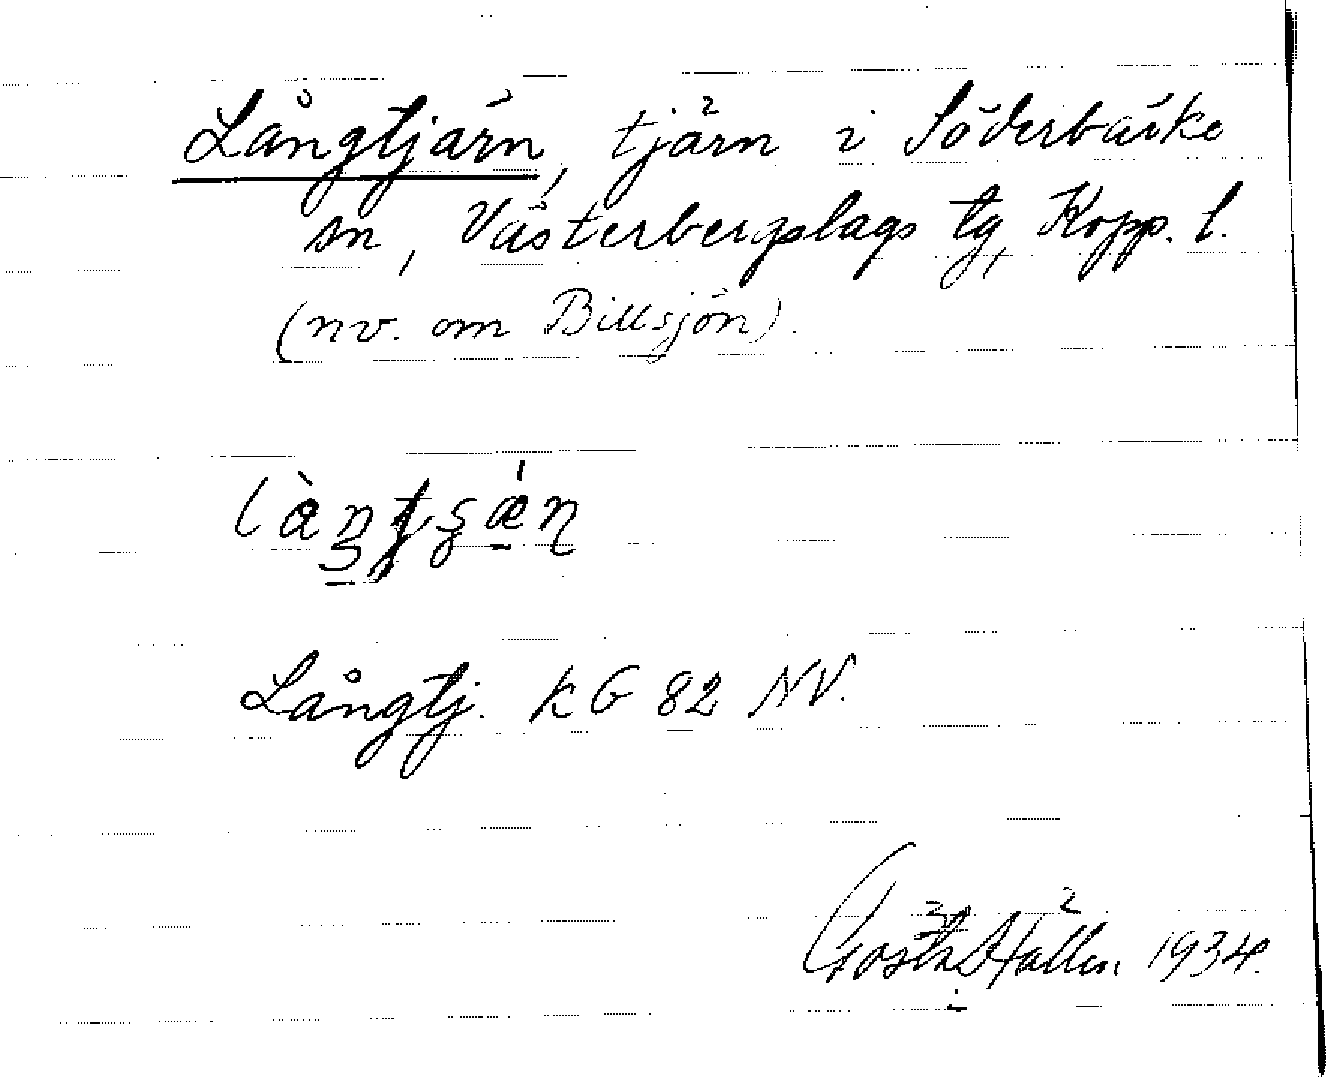 Långtjärn, tjärn i Söderbärke
sn, Västerbergslags tg, Kopp. l.
(nv. om Billsjön).
Långtj. KG 82 NV.
Gösta Hällen 1934.